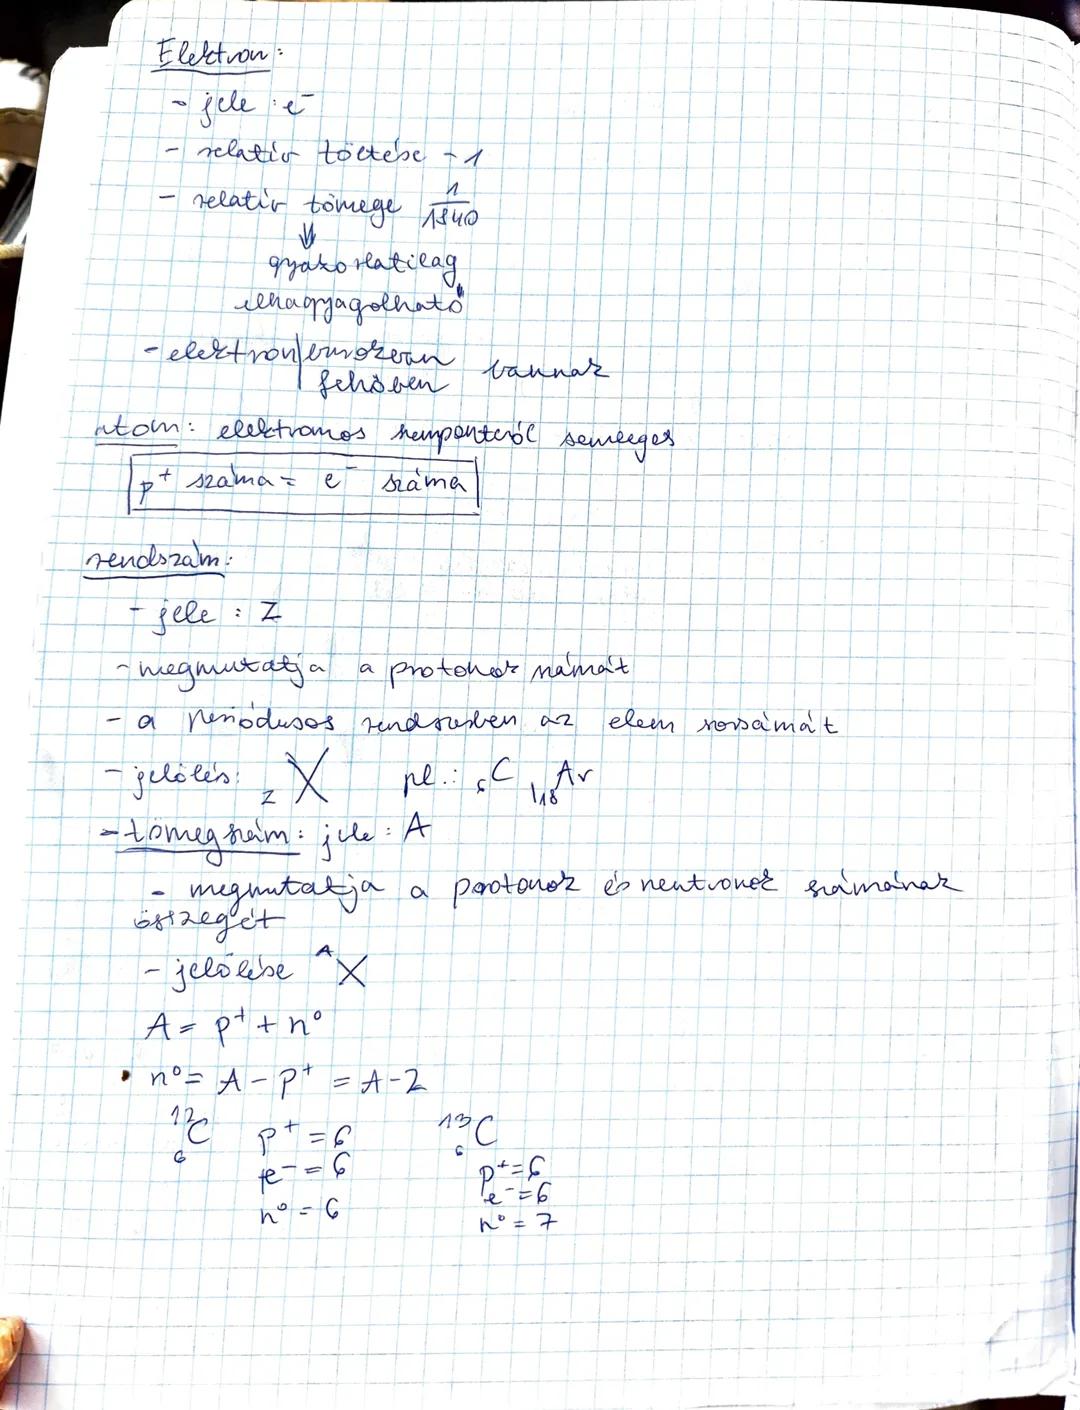 Elektron:
- jele: e⁻
- relatív töltése -1
- relatív tömege 1/1840
⇓
gyakorlatilag
elhagyagolható
- elektron burokban vannak
felhőben
atom: elektromos szempontból semleges
p⁺ száma = e⁻ száma
rendszám:
- jele: Z
- megmutatja a protonok számát
- a periódusos rendszerben az elem sorszámát
- jelölés: ZX pl.: ₆C ₁₈Ar
- tömegszám: jele: A
- megmutatja a protonok és neutronok számának
összegét
- jelölése ᴬX
A = p⁺ + n⁰
• n⁰ = A - p⁺ = A - Z
¹²₆C p⁺ = 6 ¹³₆C
e⁻ = 6 p⁺ = 6
n⁰ = 6 e⁻ = 6
n⁰ = 7